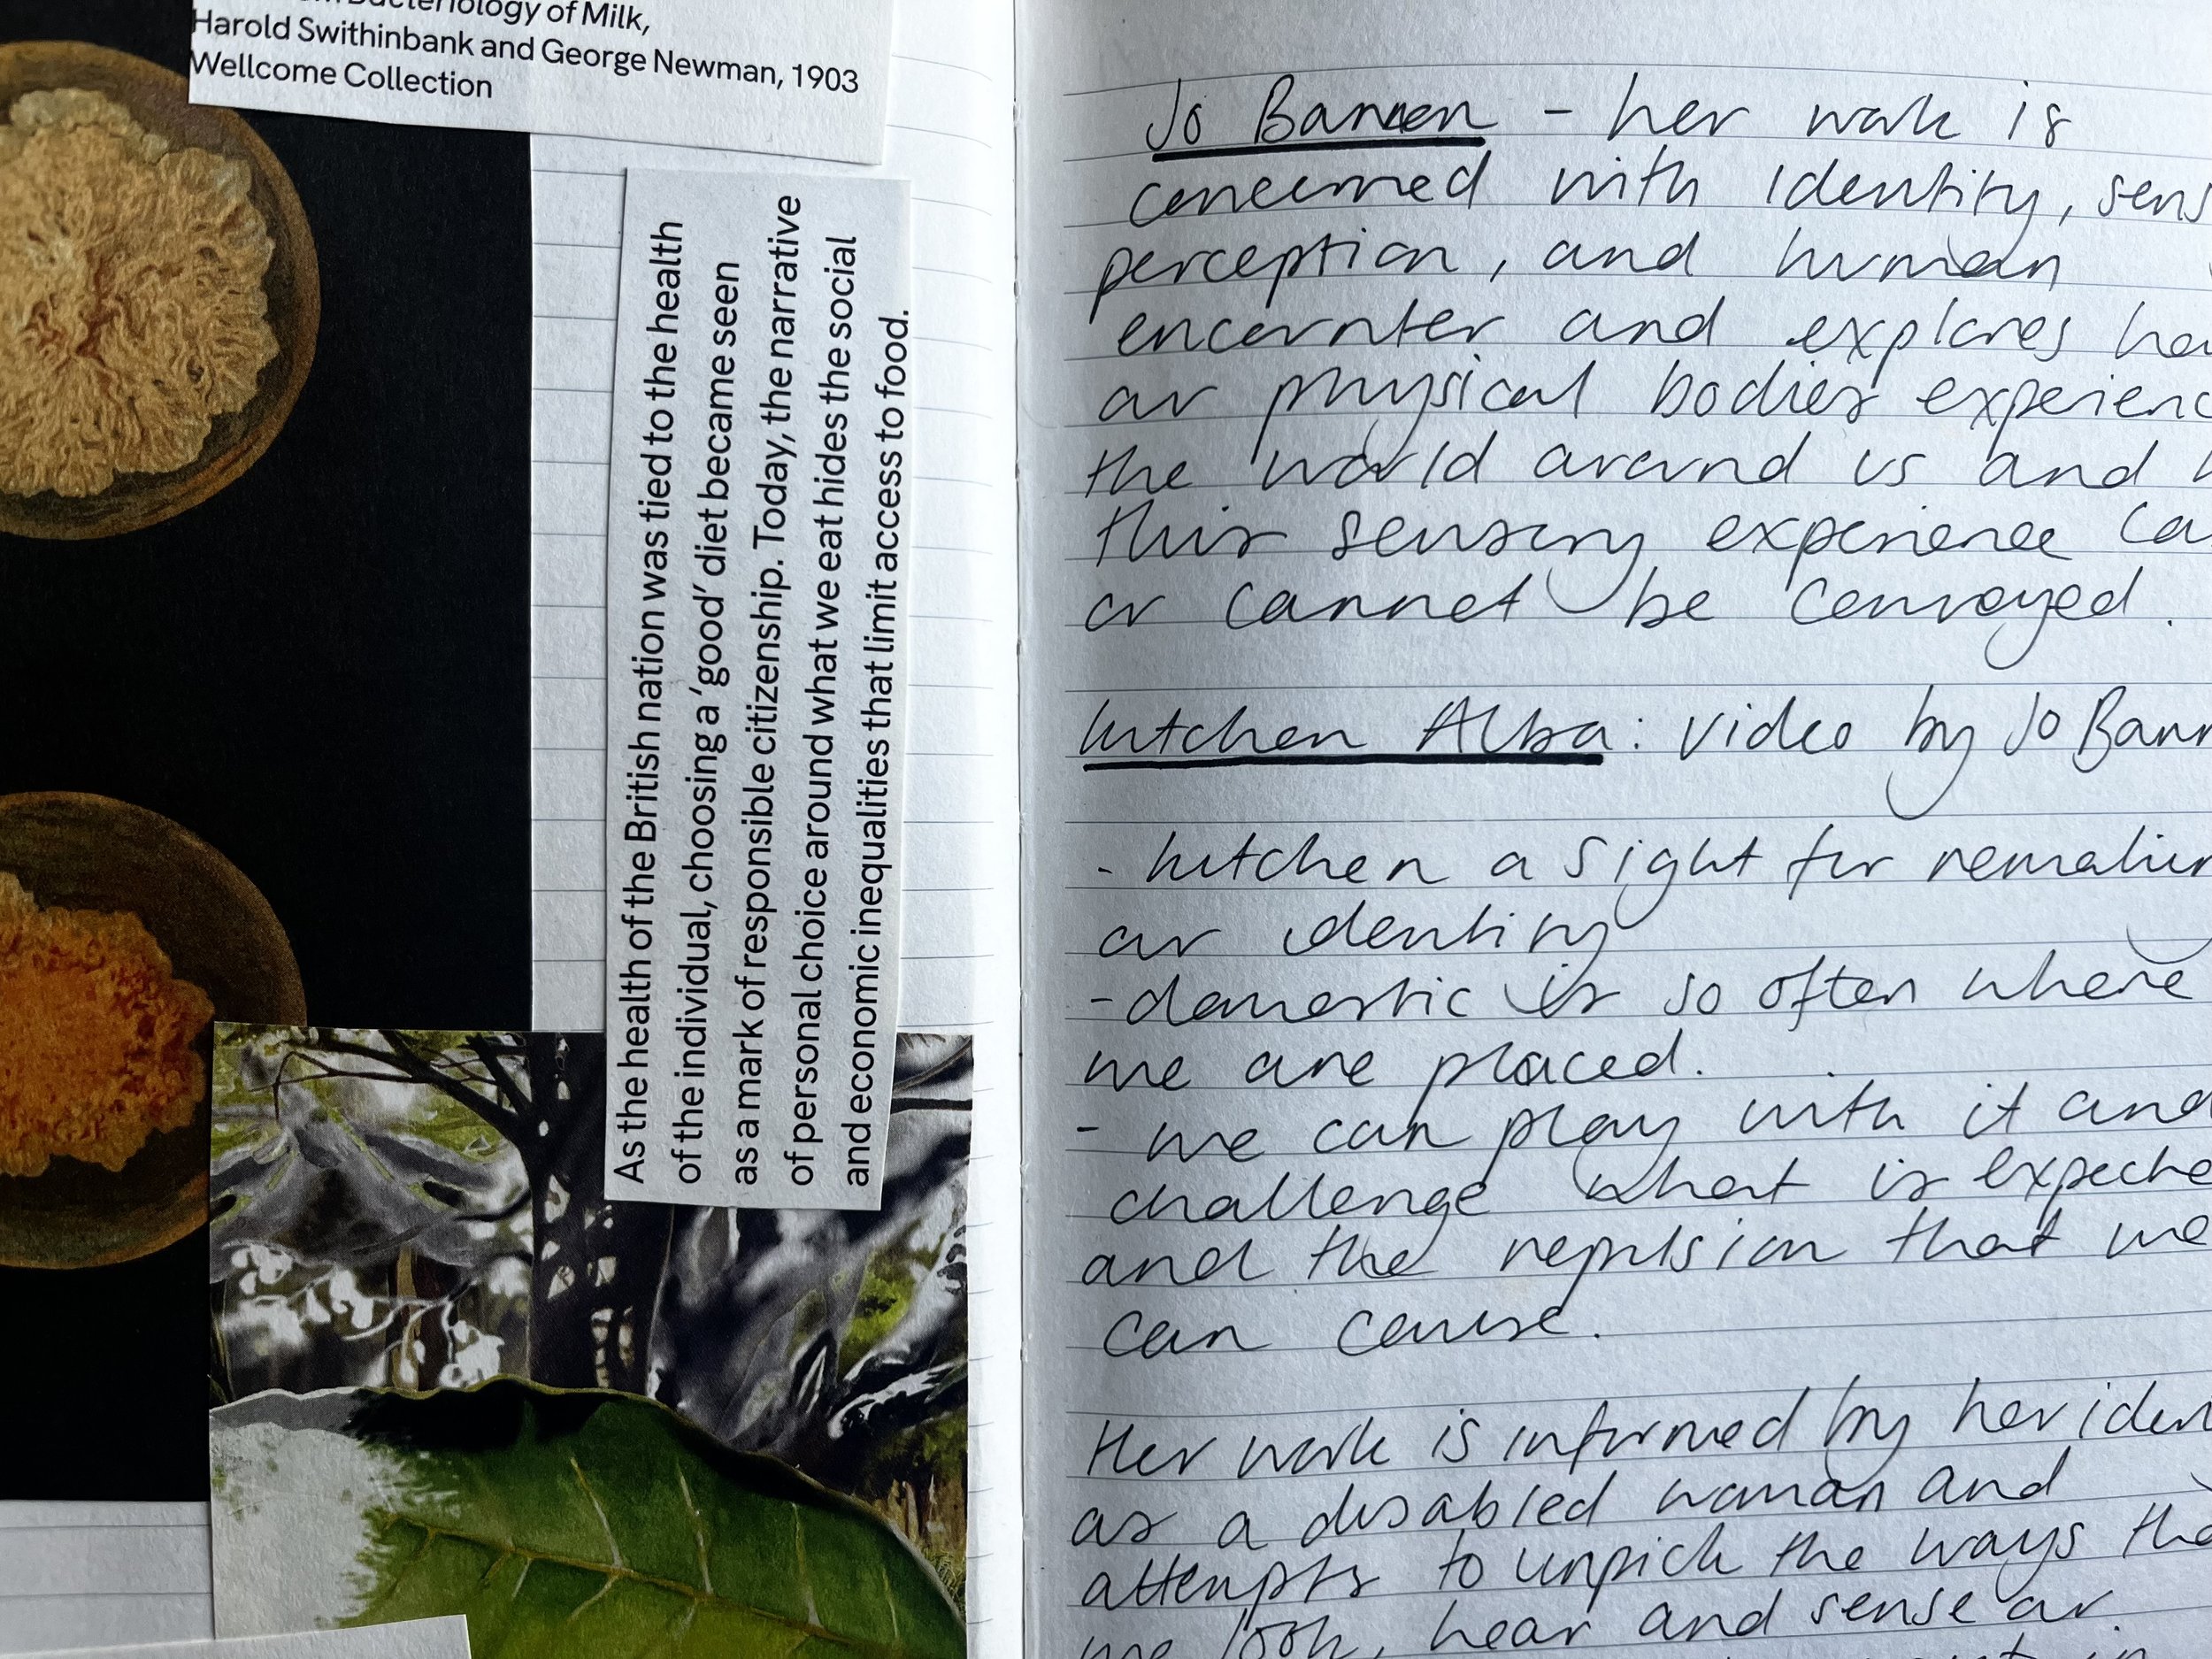 Bacteriology of Milk,
Harold Swithinbank and George Newman, 1903
Wellcome Collection
As the health of the British nation was tied to the health
of the individual, choosing a ‘good’ diet became seen
as a mark of responsible citizenship. Today, the narrative
of personal choice around what we eat hides the social
and economic inequalities that limit access to food.
Jo Bannon - her work is
concerned with identity, sens
perception, and human
encounter and explores ho
our physical bodies experienc
the world around us and h
this sensory experience ca
or cannot be conveyed.
kitchen Alba: video by Jo Bann
- kitchen a sight for remakin
our identity
- domestic is so often where
we are placed.
- we can play with it and
challenge what is expecte
and the repulsion that we
can cause.
Her work is informed by her iden
as a disabled woman and
attempts to unpick the ways the
we look, hear and sense our